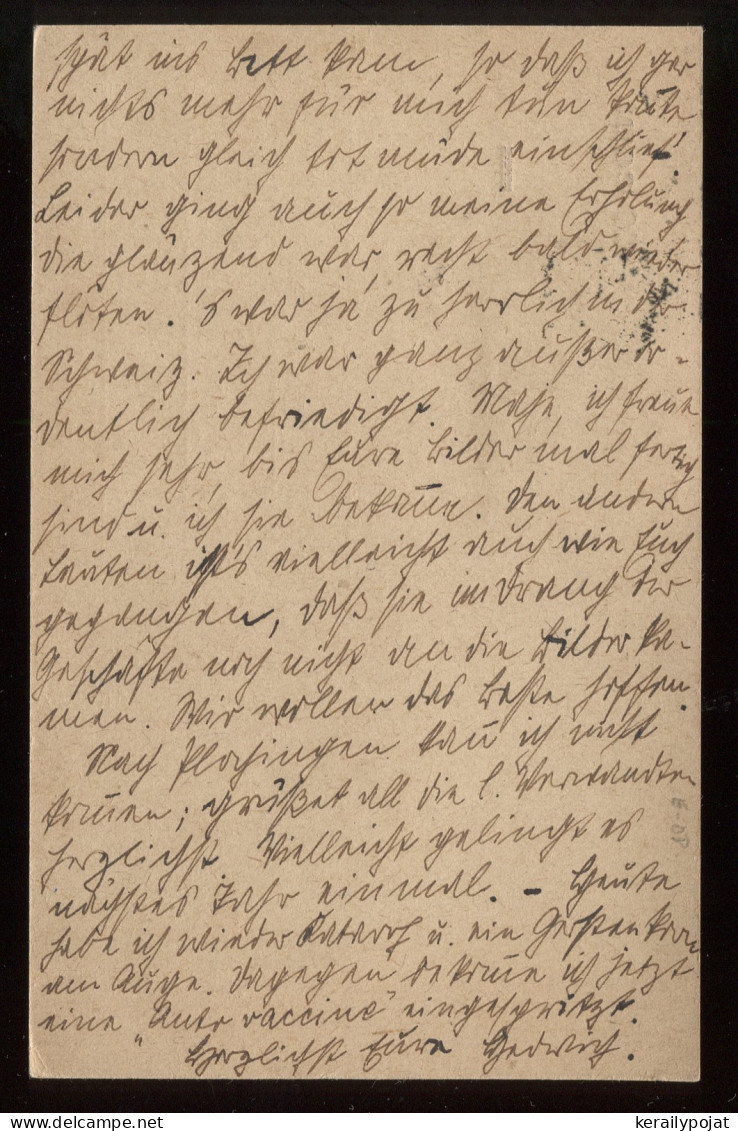 spät ins Bett kam, so daß ich gar
nichts mehr für mich tun konnte
sondern gleich totmüde einschlief!
Leider ging auch so meine Erholung
die glänzend war recht bald wieder
flöten. 's war ja zu herrlich in der
Schweiz. Ich war ganz außeror-
dentlich befriedigt. ich freue
mich sehr, bis Eure Bilder mal fertig
sind u. ich sie bekom̅e. Den andern
Leuten ist's vielleicht auch wie Euch
gegangen, daß sie im Drang der
Geschäfte noch nicht an die Bilder ka-
men. Wir wollen das Beste hoffen.
Nach Plochingen kan̅ ich nicht
kom̅en; grüßet all die l. Verwandten
herzlichst Vielleicht gelingt es
nächstes Jahr einmal. – Heute
habe ich wieder Katarrh u. ein Gerstenkorn
am Auge. Dagegen bekom̅e ich jetzt
eine „Autovaccine" eingespritzt.
Herzlichst Eure Hedwich.
kerailypojat